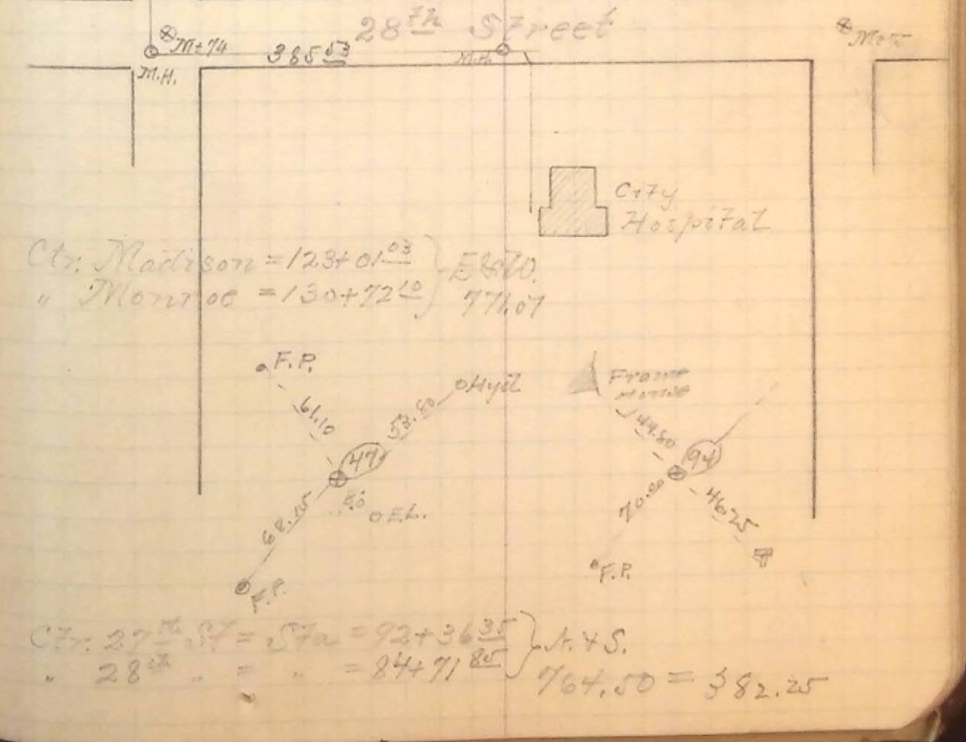 28th Street
M+74
385 53
M.H.
M.H.
City
Hospital
Ctr. Madison = 123+01 03 } E&W.
" Monroe = 130+72 10 } 771.07
F.P.
61.10
53.80
Hyd
47
8.0
E.L.
68.15
F.P.
Frame
House
44.80
94
70.80
46.25
F.P.
Ctr. 27th St = Sta = 92+36 35 } N. & S.
" 28th " = " = 84+71 85 } 764.50 = 382.25